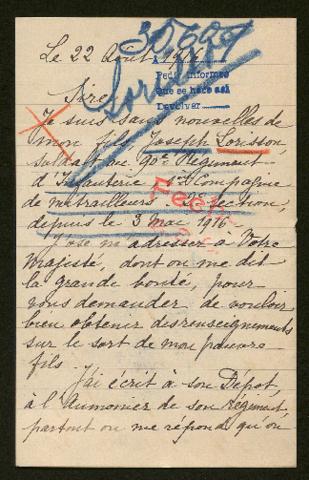 30.697
Le 22 Août 1916
Pedir informes
que se hace así
Devolver
Lorisson
Sire
Je suis sans nouvelles de
mon fils Joseph Lorisson,
soldat au 90e Régiment
d'Infanterie 1e Compagnie
de mitrailleurs Section,
depuis le 3 mai 1916
J'ose m'adresser à Votre
Majesté, dont on me dit
la grande bonté, pour
vous demander de vouloir
bien obtenir des renseignements
sur le sort de mon pauvre
fils.
J'ai écrit à son Dépôt,
à l'Aumonier de son Régiment,
partout on me répond qu'on